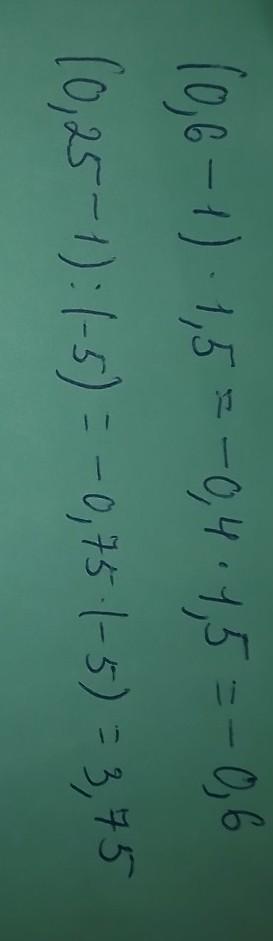 (0,6 - 1) · 1,5 = -0,4 · 1,5 = -0,6
(0,25 - 1) : (-5) = -0,75 · (-5) = 3,75